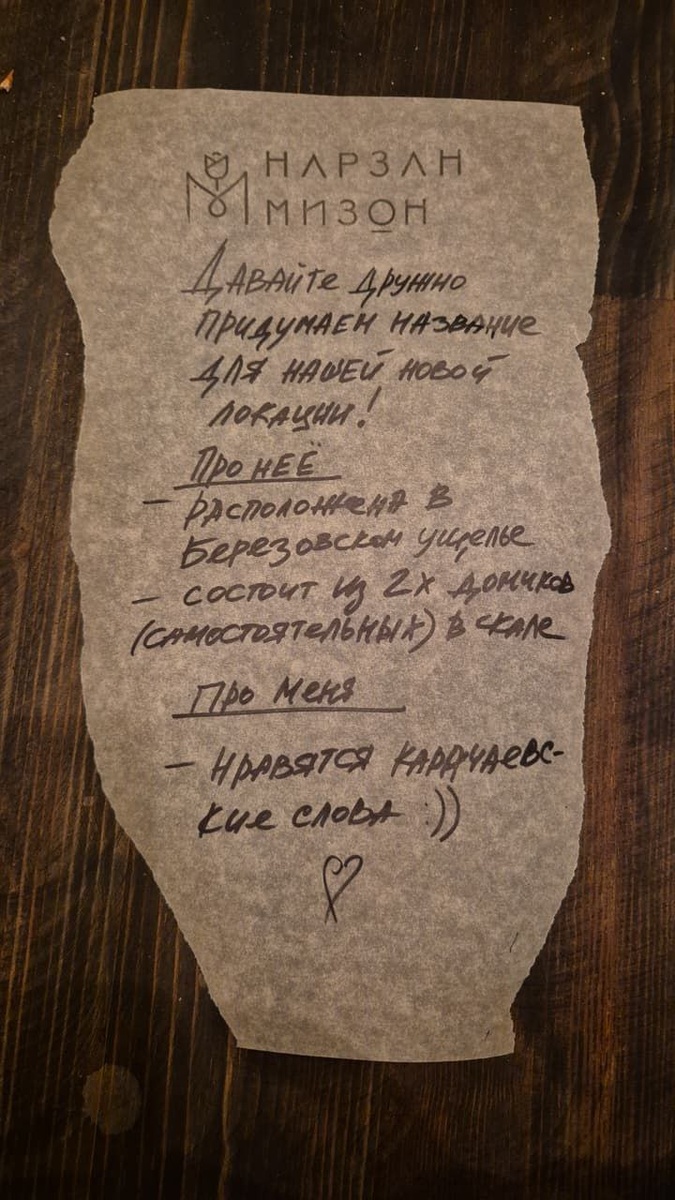 НАРЗАН
МИЗОН
Давайте дружно
придумаем название
для нашей новой
локации!
Про неё
– расположена в
Березовском ущелье
– состоит из 2х домиков
(самостоятельных) в скале
Про меня
– Нравятся карачаевс-
кие слова :))